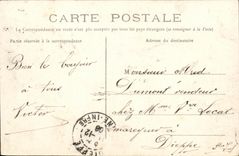 CARTE POSTALE
La Correspondance au recto n'est pas acceptée par tous les pays étrangers (se renseigner à la Poste)
Partie réservée à la correspondance
Adresse du destinataire
Bien le bonjour
à tous
Victor
Monsieur Alfred
Dumont vendeur
chez Mme Vve Locat
mareyeur à
Dieppe
DIEPPE